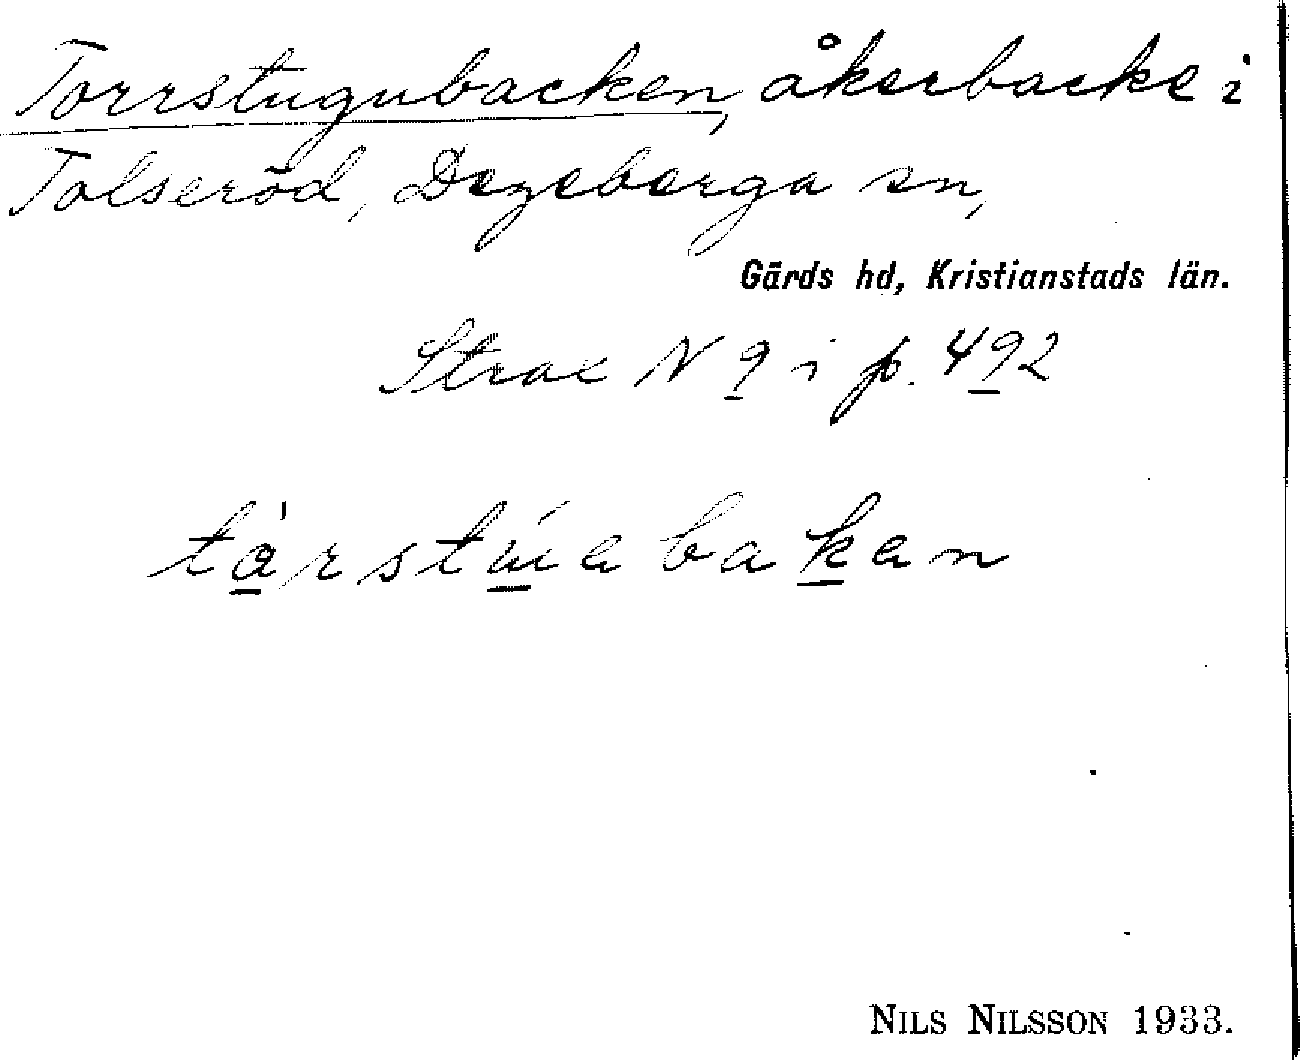 Torrstugubacken, åkerbacke i
Tolseröd, Degeberga sn,
Gärds hd, Kristianstads län.
Strax N 9 i p. 492
NILS NILSSON 1933.